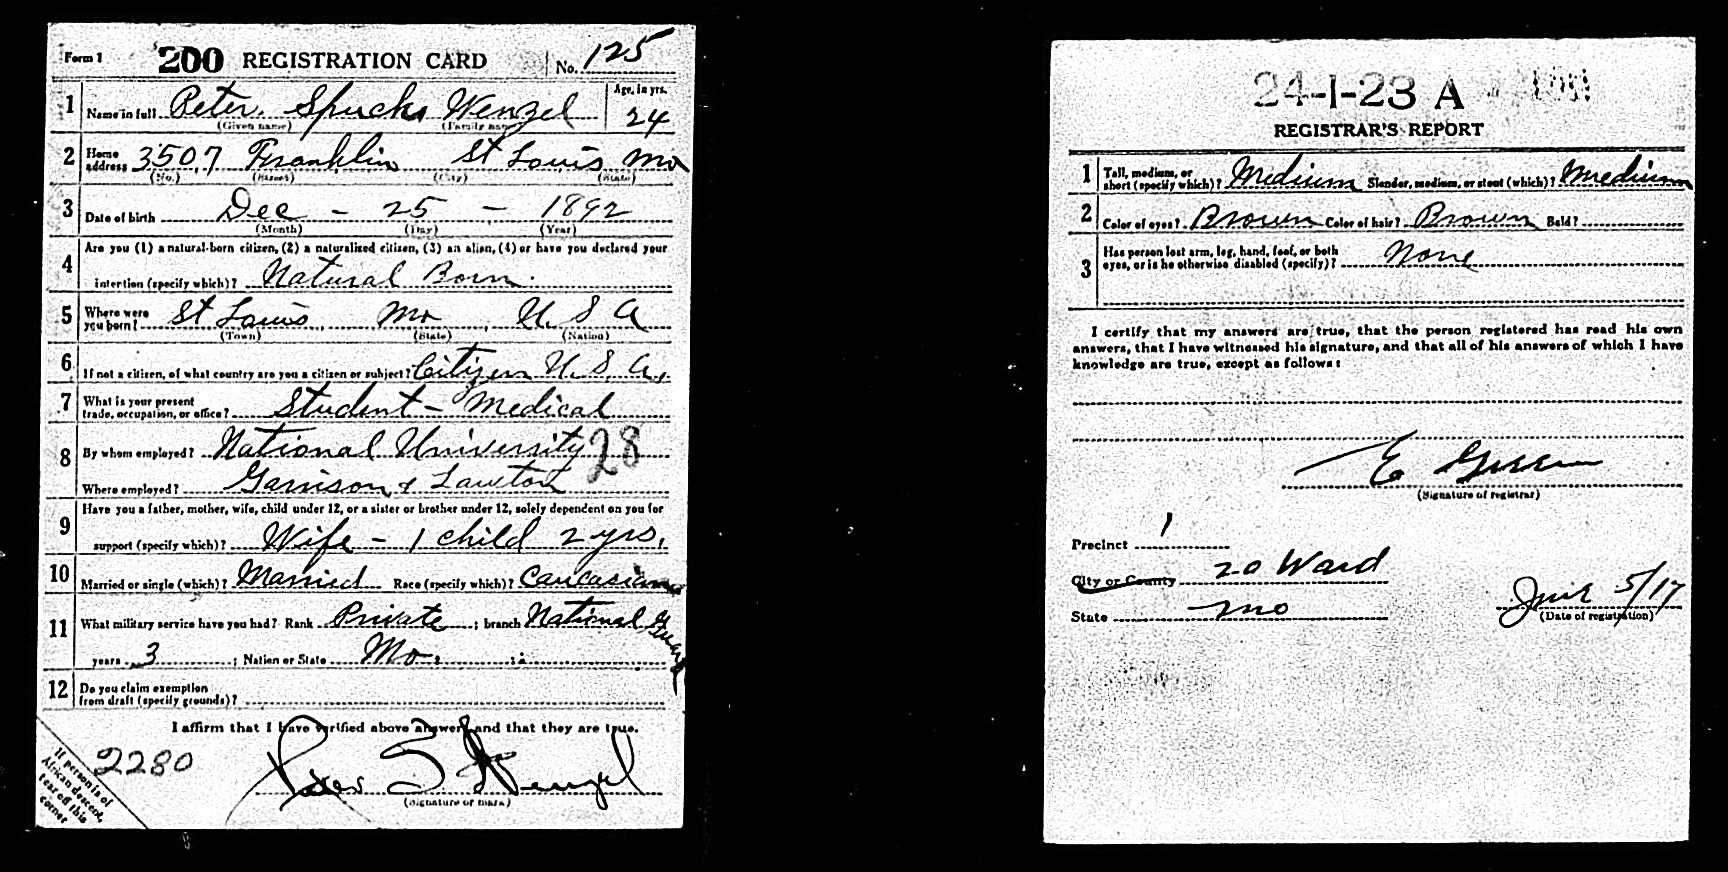 Form 1 200 REGISTRATION CARD No. 125
1 Name in full Peter Spucks Wenzel Age, in yrs. 24
(Given name) (Family name)
2 Home address 3507 Franklin St Louis Mo
(No.) (Street) (City) (State)
3 Date of birth Dec - 25 - 1892
(Month) (Day) (Year)
4 Are you (1) a natural-born citizen, (2) a naturalized citizen, (3) an alien, (4) or have you declared your
intention (specify which)? Natural Born.
5 Where were you born? St Louis, Mo, U. S A
(Town) (State) (Nation)
6 If not a citizen, of what country are you a citizen or subject? Citizen U. S. A.
7 What is your present trade, occupation, or office? Student - Medical
8 By whom employed? National University 28
Where employed? Garrison & Lawton
9 Have you a father, mother, wife, child under 12, or a sister or brother under 12, solely dependent on you for
support (specify which)? Wife - 1 child 2 yrs.
10 Married or single (which)? Married Race (specify which)? Caucasian
11 What military service have you had? Rank Private ; branch National Guard
years 3 ; Nation or State Mo.
12 Do you claim exemption from draft (specify grounds)?
I affirm that I have verified above answers and that they are true.
2280
Peter S Wenzel
(Signature or mark)
If person is of
African descent,
tear off this
corner
24-1-23 A
REGISTRAR'S REPORT
1 Tall, medium, or short (specify which)? Medium Slender, medium, or stout (which)? Medium
2 Color of eyes? Brown Color of hair? Brown Bald?
3 Has person lost arm, leg, hand, foot, or both
eyes, or is he otherwise disabled (specify)? None
I certify that my answers are true, that the person registered has read his own
answers, that I have witnessed his signature, and that all of his answers of which I have
knowledge are true, except as follows:
E
(Signature of registrar)
Precinct 1
City or County 20 Ward
State Mo June 5/17
(Date of registration)